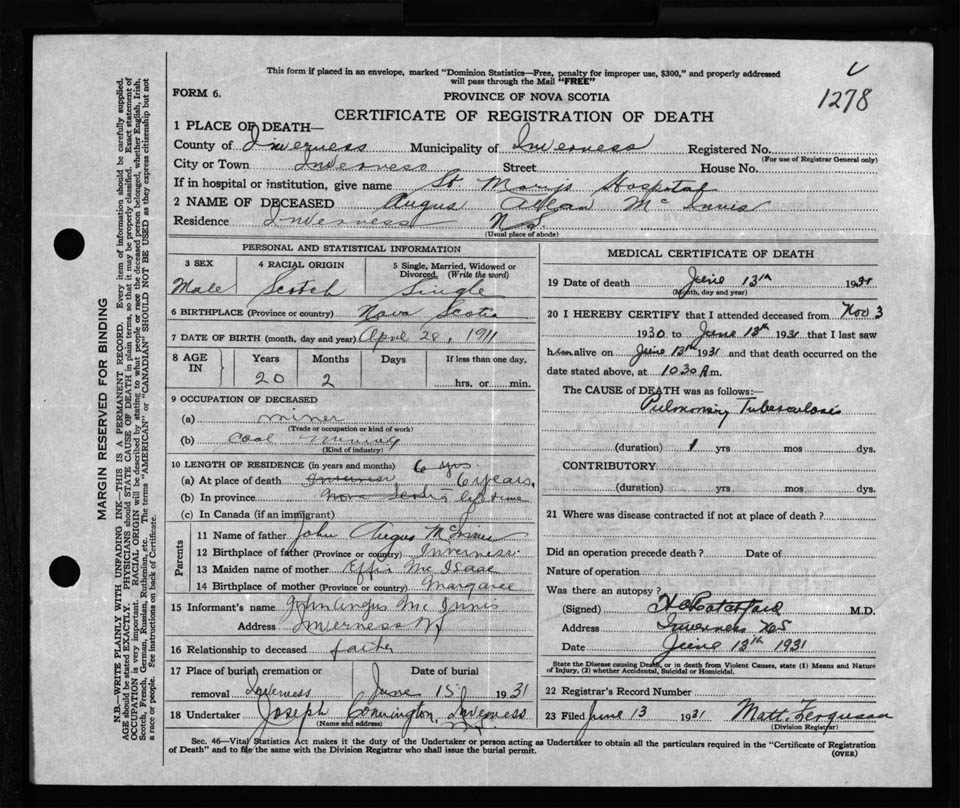 This form if placed in an envelope, marked "Dominion Statistics—Free, penalty for improper use, $300," and properly addressed
will pass through the Mail "FREE"
FORM 6.
PROVINCE OF NOVA SCOTIA
1278
CERTIFICATE OF REGISTRATION OF DEATH
1 PLACE OF DEATH—
County of Inverness Municipality of Inverness Registered No.
(For use of Registrar General only)
City or Town Inverness Street House No.
If in hospital or institution, give name St. Marys Hospital
2 NAME OF DECEASED Angus Allan McInnis
Residence Inverness N.S.
(Usual place of abode)
PERSONAL AND STATISTICAL INFORMATION
3 SEX 4 RACIAL ORIGIN 5 Single, Married, Widowed or Divorced, (Write the word)
Male Scotch Single
6 BIRTHPLACE (Province or country) Nova Scotia
7 DATE OF BIRTH (month, day and year) April 28, 1911
8 AGE IN Years Months Days If less than one day,
20 2 hrs. or min.
9 OCCUPATION OF DECEASED
(a) miner
(Trade or occupation or kind of work)
(b) coal mining
(Kind of industry)
10 LENGTH OF RESIDENCE (in years and months) 6 yrs.
(a) At place of death Inverness 6 years,
(b) In province Nova Scotia life time
(c) In Canada (if an immigrant)
Parents
11 Name of father John Angus McInnis
12 Birthplace of father (Province or country) Inverness.
13 Maiden name of mother Effie Mc Isaac
14 Birthplace of mother (Province or country) Margaree
15 Informant's name John Angus Mc Innis
Address Inverness NS
16 Relationship to deceased father
17 Place of burial, cremation or Date of burial
removal Inverness June 15 1931
18 Undertaker Joseph Inverness
(Name and address)
MEDICAL CERTIFICATE OF DEATH
19 Date of death June 13th 1931
(Month, day and year)
20 I HEREBY CERTIFY that I attended deceased from Nov 3
1930 to June 13th 1931 that I last saw
him alive on June 13th 1931 and that death occurred on the
date stated above, at 10 30 A m.
The CAUSE of DEATH was as follows:—
Pulmonary Tuberculosis
(duration) 1 yrs mos dys.
CONTRIBUTORY
(duration) yrs mos dys.
21 Where was disease contracted if not at place of death?
Did an operation precede death? Date of
Nature of operation
Was there an autopsy?
(Signed) M.D.
Address Inverness N.S
Date June 13th 1931
State the Disease causing Death, or in death from Violent Causes, state (1) Means and Nature
of Injury, (2) whether Accidental, Suicidal or Homicidal.
22 Registrar's Record Number
23 Filed June 13 1931 Matt. Ferguson
(Division Registrar)
Sec. 46—Vital Statistics Act makes it the duty of the Undertaker or person acting as Undertaker to obtain all the particulars required in the "Certificate of Registration
of Death" and to file the same with the Division Registrar who shall issue the burial permit.
(OVER)
MARGIN RESERVED FOR BINDING
N.B.—WRITE PLAINLY WITH UNFADING INK—THIS IS A PERMANENT RECORD. Every item of information should be carefully supplied.
AGE should be stated EXACTLY. PHYSICIANS should STATE CAUSE OF DEATH in plain terms, so that it may be properly classified. Exact statement of
OCCUPATION is very important. RACIAL ORIGIN will be described by stating to what people or race the deceased person belonged, whether English, Irish,
Scotch, French, German, Russian, Ruthenian, etc. The terms "AMERICAN" or "CANADIAN" SHOULD NOT BE USED as they express citizenship but not
a race or people. See instructions on back of Certificate.